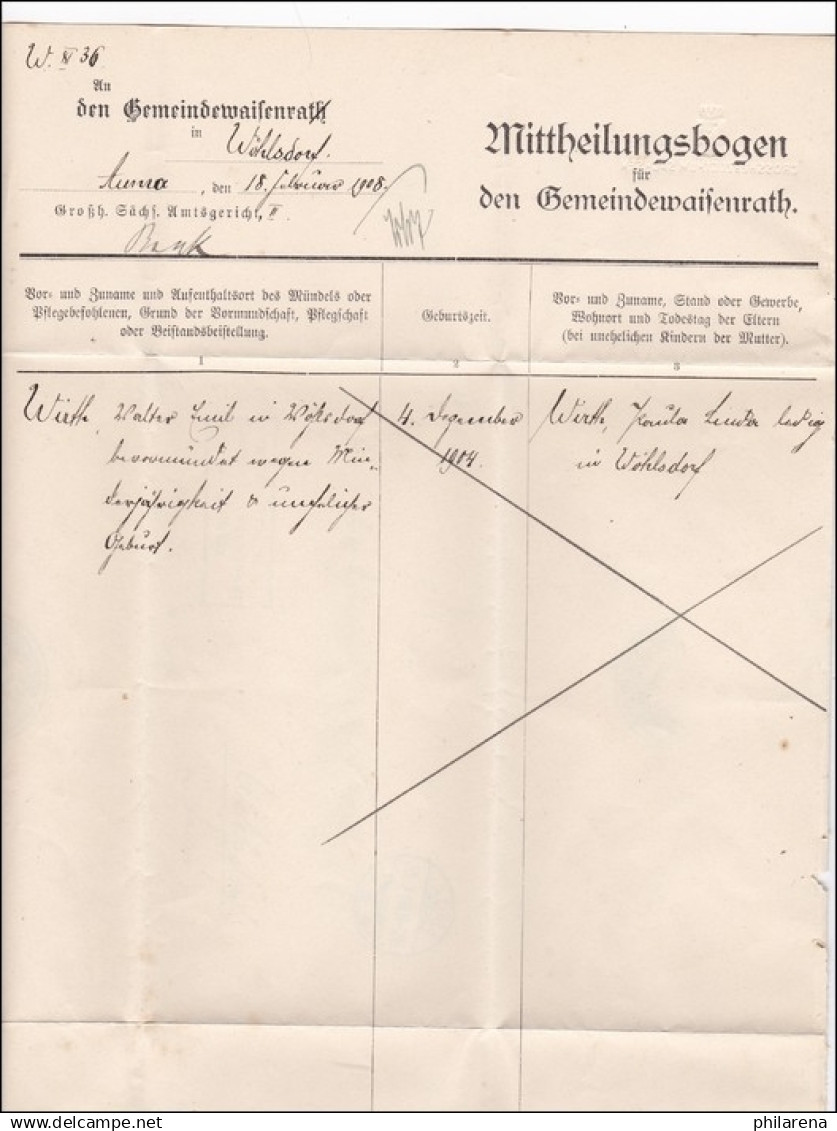 W. XI 36
An
den Gemeindewaisenrath
in Wöhlsdorf.
Auma, den 18. Februar 1908.
Großh. Sächs. Amtsgericht, II.
Mittheilungsbogen
für
den Gemeindewaisenrath.
Vor- und Zuname und Aufenthaltsort des Mündels oder
Pflegebefohlenen, Grund der Vormundschaft, Pflegschaft
oder Beistandsbestellung.
1
Geburtszeit.
2
Vor- und Zuname, Stand oder Gewerbe,
Wohnort und Todestag der Eltern
(bei unehelichen Kindern der Mutter).
3
Wirth, Walter Emil in Wöhlsdorf
bevormundet wegen Min-
derjährigkeit & unehelicher
Geburt.
4. Dezember
1904.
Wirth, Paula Linda ledig
in Wöhlsdorf
philarena